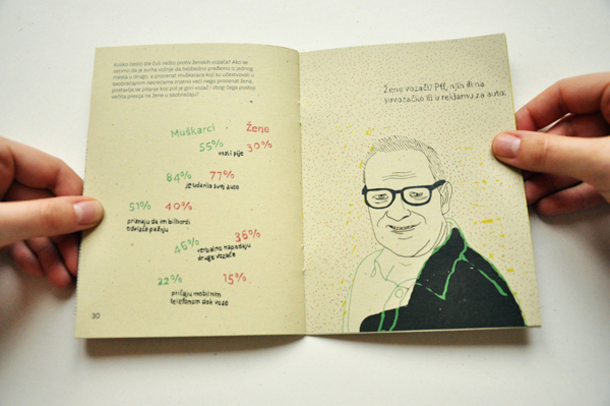 Koliko često ste čuli nešto protiv ženskih vozača? Ako se
uzmemo da je svrha vožnja da bezbedno pređemo iz jednog
mesta u drugo, a procenat muškaraca koji su učestvovali u
saobraćajnim nesrećama znatno veći nego procenat žena,
postavlja se pitanje koji pol je gori vozač i zbog čega postoji
večita presija na žene u saobraćaju?
Muškarci Žene
55% 30%
vozi i pije
84% 77%
je udarilo svoj auto
51% 40%
priznaju da im bilbordi
odvlače pažnju
45% 36%
verbalno napadaju
druge vozače
22% 15%
pričaju mobilnim
telefonom dok voze
30
Žene vozači? Pff, njih ili na
suvozačko ili u reklamu za auta.